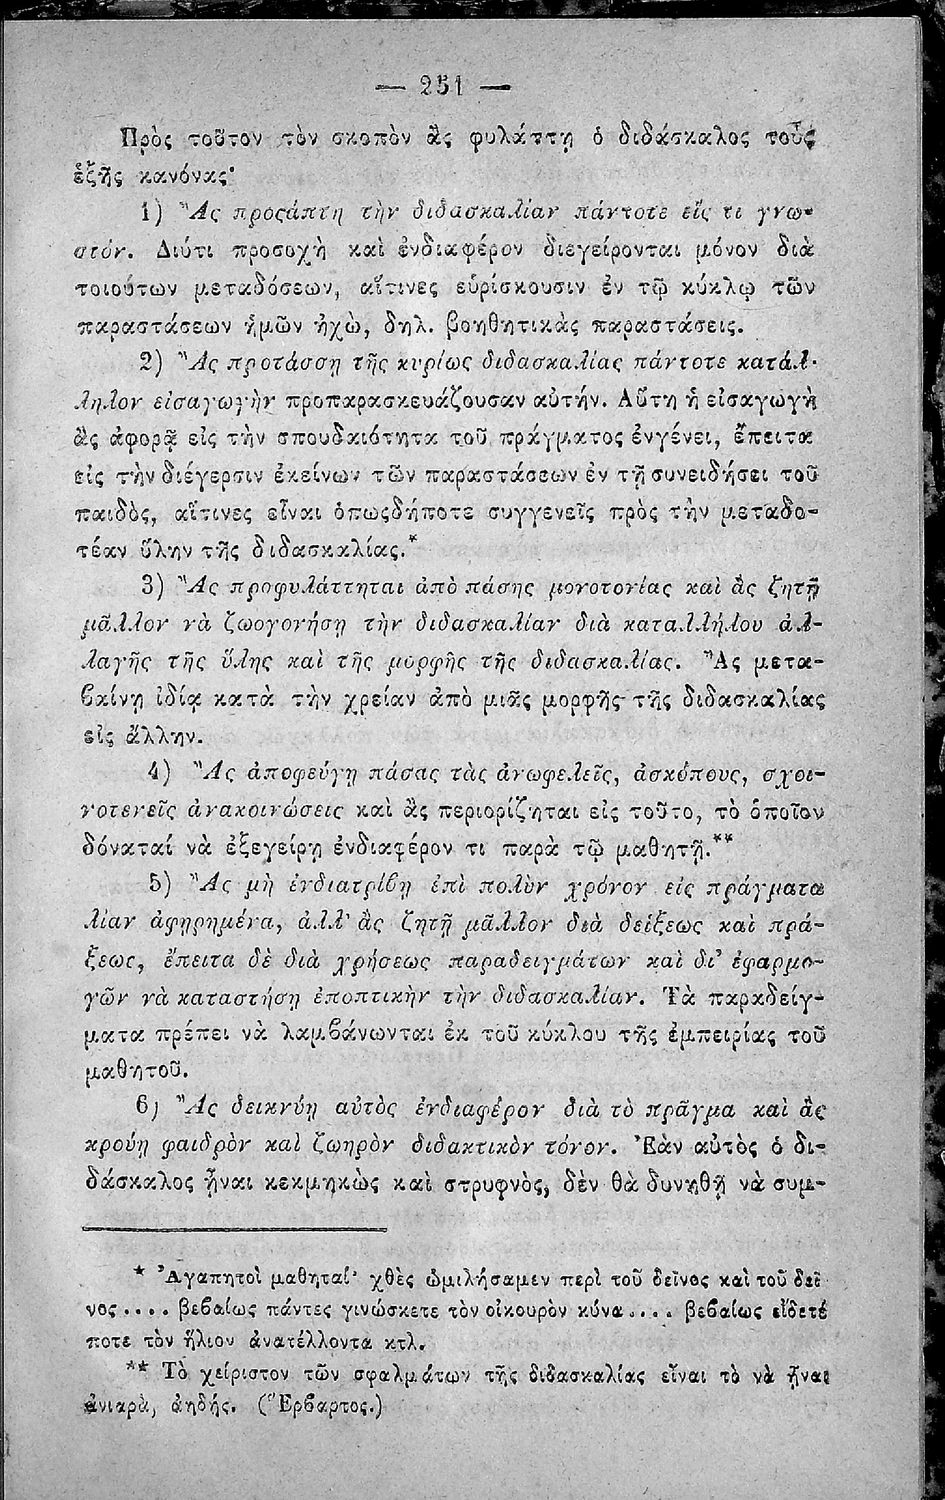 — 251 —
Πρὸς τοῦτον τὸν σκοπὸν ἂς φυλάττῃ ὁ διδάσκαλος τοὺς
ἑξῆς κανόνας·
1) Ἂς προςάπτῃ τὴν διδασκαλίαν πάντοτε εἴς τι γνω-
στόν. Διότι προσοχὴ καὶ ἐνδιαφέρον διεγείρονται μόνον διὰ
τοιούτων μεταδόσεων, αἵτινες εὑρίσκουσιν ἐν τῷ κύκλῳ τῶν
παραστάσεων ἡμῶν ἠχὼ, δηλ. βοηθητικὰς παραστάσεις.
2) Ἂς προτάσσῃ τῆς κυρίως διδασκαλίας πάντοτε κατάλ-
ληλον εἰσαγωγὴν προπαρασκευάζουσαν αὐτήν. Αὕτη ἡ εἰσαγωγὴ
ἂς ἀφορᾷ εἰς τὴν σπουδαιότητα τοῦ πράγματος ἐνγένει, ἔπειτα
εἰς τὴν διέγερσιν ἐκείνων τῶν παραστάσεων ἐν τῇ συνειδήσει τοῦ
παιδὸς, αἵτινες εἶναι ὁπωςδήποτε συγγενεῖς πρὸς τὴν μεταδο-
τέαν ὕλην τῆς διδασκαλίας.*
3) Ἂς προφυλάττηται ἀπὸ πάσης μονοτονίας καὶ ἂς ζητῇ
μᾶλλον νὰ ζωογονήσῃ τὴν διδασκαλίαν διὰ καταλλήλου ἀλ-
λαγῆς τῆς ὕλης καὶ τῆς μορφῆς τῆς διδασκαλίας. Ἂς μετα-
βαίνῃ ἰδίᾳ κατὰ τὴν χρείαν ἀπὸ μιᾶς μορφῆς τῆς διδασκαλίας
εἰς ἄλλην.
4) Ἂς ἀποφεύγῃ πάσας τὰς ἀνωφελεῖς, ἀσκόπους, σχοι-
νοτενεῖς ἀνακοινώσεις καὶ ἂς περιορίζηται εἰς τοῦτο, τὸ ὁποῖον
δύναταί νὰ ἐξεγείρῃ ἐνδιαφέρον τι παρὰ τῷ μαθητῇ.**
5) Ἂς μὴ ἐνδιατρίβῃ ἐπὶ πολὺν χρόνον εἰς πράγματα
λίαν ἀφῃρημένα, ἀλλ' ἂς ζητῇ μᾶλλον διὰ δείξεως καὶ πρά-
ξεως, ἔπειτα δὲ διὰ χρήσεως παραδειγμάτων καὶ δι' ἐφαρμο-
γῶν νὰ καταστήσῃ ἐποπτικὴν τὴν διδασκαλίαν. Τὰ παραδείγ-
ματα πρέπει νὰ λαμβάνωνται ἐκ τοῦ κύκλου τῆς ἐμπειρίας τοῦ
μαθητοῦ.
6) Ἂς δεικνύῃ αὐτὸς ἐνδιαφέρον διὰ τὸ πρᾶγμα καὶ ἂς
κρούῃ φαιδρὸν καὶ ζωηρὸν διδακτικὸν τόνον. Ἐὰν αὐτὸς ὁ δι-
δάσκαλος ᾖναι κεκμηκὼς καὶ στρυφνὸς, δὲν θὰ δυνηθῇ νὰ συμ-
* Ἀγαπητοὶ μαθηταί· χθὲς ὡμιλήσαμεν περὶ τοῦ δεῖνος καὶ τοῦ δεῖ
νος.... βεβαίως πάντες γινώσκετε τὸν οἰκουρὸν κύνα.... βεβαίως εἴδετέ
ποτε τὸν ἥλιον ἀνατέλλοντα κτλ.
** Τὸ χείριστον τῶν σφαλμάτων τῆς διδασκαλίας εἶναι τὸ νὰ ᾖναι
ἀνιαρὰ, ἀηδής. (Ἕρβαρτος.)